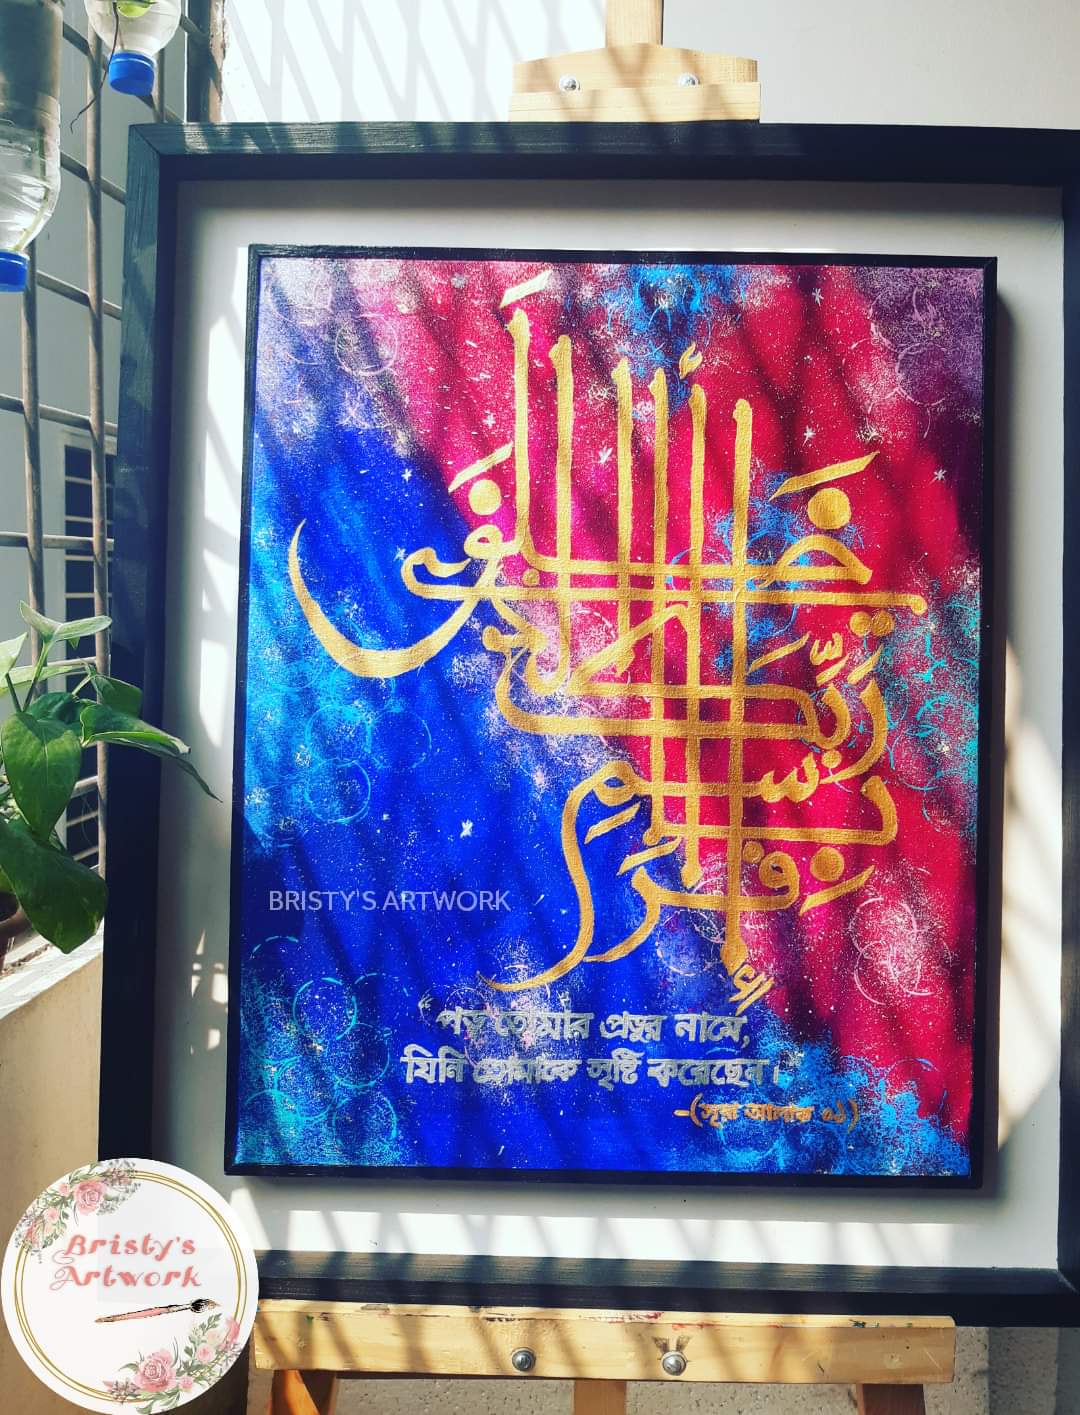 ٱقْرَأْ بِٱسْمِ رَبِّكَ ٱلَّذِى خَلَقَ
BRISTY'S ARTWORK
“পড় তোমার প্রভুর নামে,
যিনি তোমাকে সৃষ্টি করেছেন।”
-(সূরা আলাক ০১)
Bristy's
Artwork